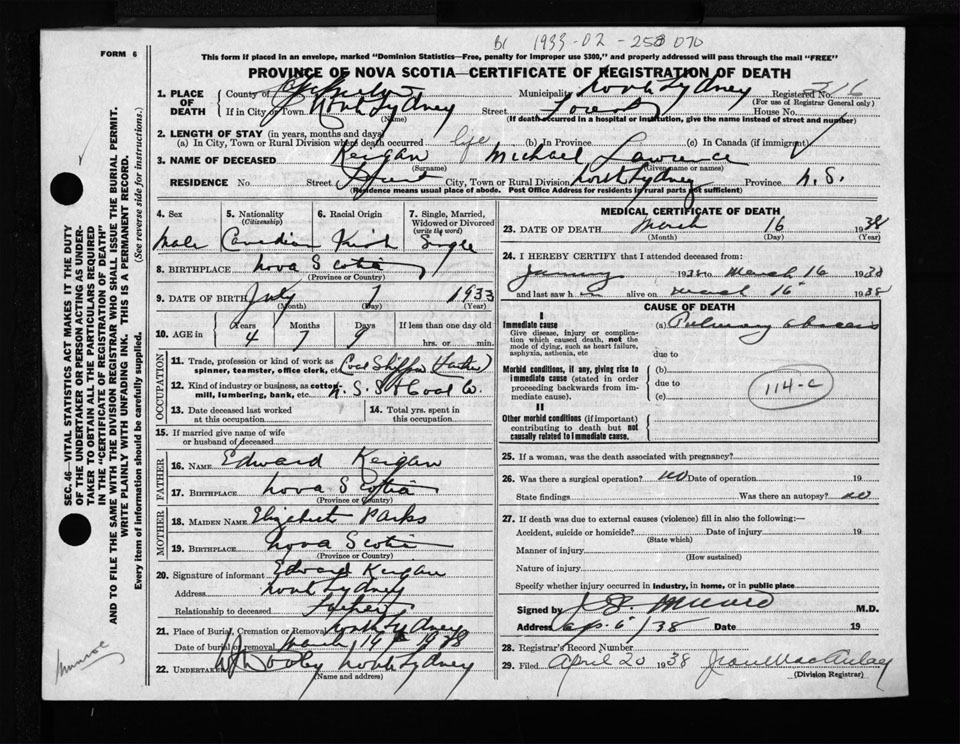 FORM 6
B1 1933-02-250070
This form if placed in an envelope, marked "Dominion Statistics—Free, penalty for improper use $300," and properly addressed will pass through the mail "FREE"
PROVINCE OF NOVA SCOTIA—CERTIFICATE OF REGISTRATION OF DEATH
1. PLACE OF DEATH County of Municipality North Sydney Registered No.
(For use of Registrar General only)
If in City or Town North Sydney Street House No.
(Name) (If death occurred in a hospital or institution, give the name instead of street and number)
2. LENGTH OF STAY (in years, months and days)
(a) In City, Town or Rural Division where death occurred life (b) in Province (c) In Canada (if immigrant)
3. NAME OF DECEASED Keigan Michael Lawrence
(Surname) (Given name or names)
RESIDENCE No. Street City, Town or Rural Division North Sydney Province N.S.
(Residence means usual place of abode. Post Office Address for residents in rural parts not sufficient)
4. Sex Male
5. Nationality (Citizenship) Canadian
6. Racial Origin
7. Single, Married, Widowed or Divorced (write the word) Single
8. BIRTHPLACE Nova Scotia
(Province or Country)
9. DATE OF BIRTH July 7 1933
(Month) (Day) (Year)
10. AGE in Years Months Days If less than one day old
4 7 9 hrs. or min.
OCCUPATION
11. Trade, profession or kind of work as spinner, teamster, office clerk, etc. Coal Shipper (Father)
12. Kind of industry or business, as cotton mill, lumbering, bank, etc. N.S.S & Coal Co.
13. Date deceased last worked at this occupation
14. Total yrs. spent in this occupation
15. If married give name of wife or husband of deceased
FATHER
16. NAME Edward Keigan
17. BIRTHPLACE Nova Scotia
(Province or Country)
MOTHER
18. MAIDEN NAME Elizabeth Parks
19. BIRTHPLACE Nova Scotia
(Province or Country)
20. Signature of informant Edward Keigan
Address North Sydney
Relationship to deceased Father
21. Place of Burial, Cremation or Removal North Sydney
Date of burial or removal March 19th 1938
22. UNDERTAKER Dooley North Sydney
(Name and address)
MEDICAL CERTIFICATE OF DEATH
23. DATE OF DEATH March 16 1938
(Month) (Day) (Year)
24. I HEREBY CERTIFY that I attended deceased from:
January 1938 to March 16 1938
and last saw h im alive on March 16 1938
CAUSE OF DEATH
I
Immediate cause (a) Pulmonary abscess
Give disease, injury or complication which caused death, not the mode of dying, such as heart failure, asphyxia, asthenia, etc
due to
Morbid conditions, if any, giving rise to immediate cause (stated in order proceeding backwards from immediate cause).
(b)
due to
(c)
114-c
II
Other morbid conditions (if important) contributing to death but not causally related to immediate cause.
25. If a woman, was the death associated with pregnancy?
26. Was there a surgical operation? no Date of operation 19
State findings Was there an autopsy? no
27. If death was due to external causes (violence) fill in also the following:—
Accident, suicide or homicide? Date of injury 19
(State which)
Manner of injury
(How sustained)
Nature of injury
Specify whether injury occurred in industry, in home, or in public place
Signed by M.D.
Address Date 19
28. Registrar's Record Number
29. Filed April 20 1938 Jean MacAulay
(Division Registrar)
SEC. 46—VITAL STATISTICS ACT MAKES IT THE DUTY
OF THE UNDERTAKER OR PERSON ACTING AS UNDER-
TAKER TO OBTAIN ALL THE PARTICULARS REQUIRED
IN THE "CERTIFICATE OF REGISTRATION OF DEATH"
AND TO FILE THE SAME WITH THE DIVISION REGISTRAR WHO SHALL ISSUE THE BURIAL PERMIT.
WRITE PLAINLY WITH UNFADING INK. THIS IS A PERMANENT RECORD.
Every item of information should be carefully supplied. (See reverse side for instructions.)